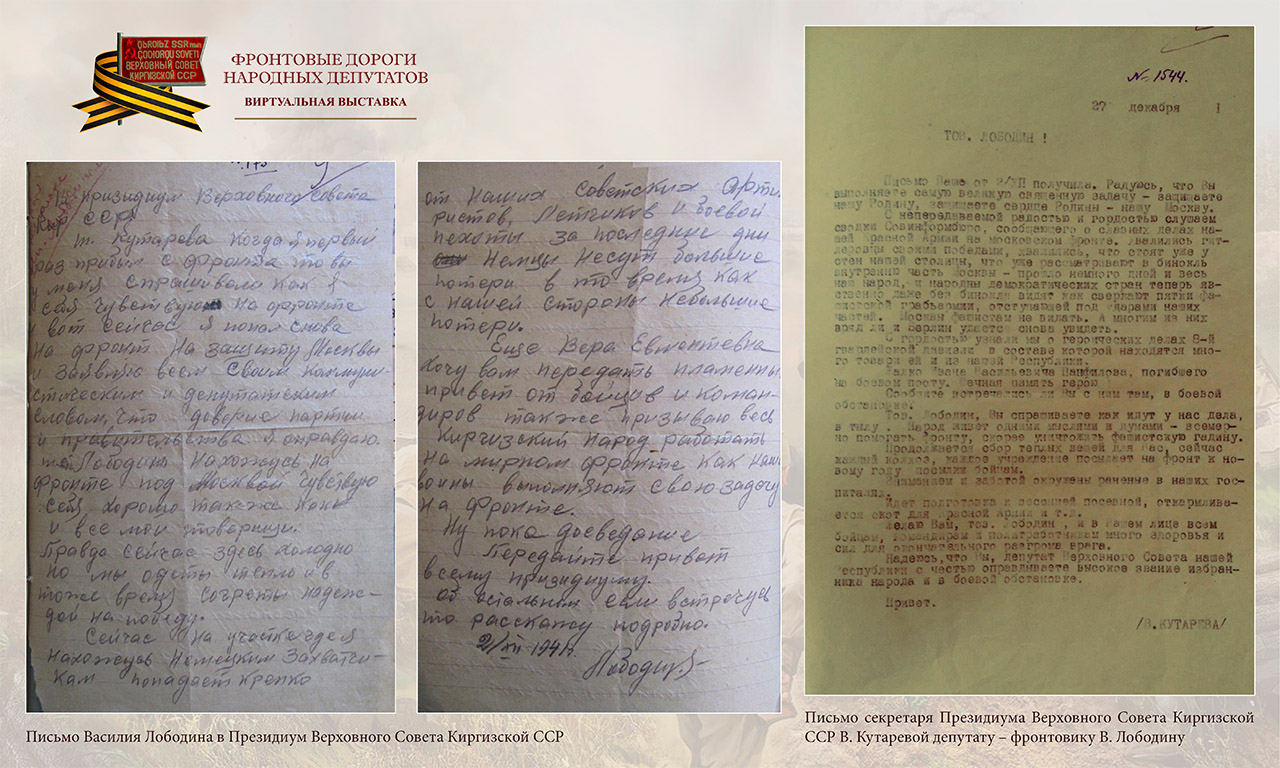 QЬROIЬZ SSR
ÇOOЮRQU SOVETI
ВЕРХОВНЫЙ СОВЕТ
КИРГИЗСКОЙ ССР
ФРОНТОВЫЕ ДОРОГИ
НАРОДНЫХ ДЕПУТАТОВ
ВИРТУАЛЬНАЯ ВЫСТАВКА
В призидиум Верховного Совета
ССР
т. Кутарева Когда я первый
раз прибыл с фронта то вы
у меня спрашивали как я
себя чувствую на фронте
и вот сейчас я попал снова
на фронт на защиту Москвы
и заявляю всем своим коммуни-
стическим и депутатским
словам, что доверие партии
и правительства я оправдаю.
Лободин нахожусь на
фронте под Москвой чувствую
себя хорошо также как
и все мои товарищи.
Правда сейчас здесь холодно
но мы одеты тепло и в
тоже время согреты надеж-
дой на победу.
Сейчас на участке где я
нахожусь Немецким захватчи-
кам попадает крепко
от наших советских арти
ристов, летчиков и боевой
пехоты за последние дни
Немцы несут большие
потери в то время как
с нашей стороны небольшие
потери.
Еще Вера Евмонтевна
хочу вам передать пламенны
привет от бойцов и коман-
диров также призываю весь
Киргизский народ работать
на мирном фронте как наши
воины выполняют свою задачу
на фронте.
Ну пока досведание
Передайте привет
всему призидиуму.
об остальном если встречусь
то расскажу подробно.
2/XII 1941г.
Лободин
Письмо Василия Лободина в Президиум Верховного Совета Киргизской ССР
№ 1544.
27 декабря I
ТОВ. ЛОБОДИН !
Письмо Ваше от 2/ХП получила. Радуюсь, что Вы
выполняете самую великую священную задачу – защищаете
нашу Родину, защищаете сердце Родины – нашу Москву.
С непередаваемой радостью и гордостью слушаем
сводки Совинформбюро, сообщающего о славных делах на-
шей Красной Армии на московском фронте. Хвалились гит-
леровцы своими победами, хвалились, что стоят уже у
стен нашей столицы, что уже рассматривают в бинокль
внутреннюю часть Москвы – прошло немного дней и весь
наш народ, и народы демократических стран теперь яв-
ственно даже без бинокля видят как сверкают пятки фа-
шистской грабьармии, отступающей под ударами наших
частей. Москвы фашистам не видать. А многим из них
вряд ли и Берлин удастся снова увидеть.
С гордостью узнали мы о героических делах 8-й
гвардейской дивизии в составе которой находятся мно-
го товарищей и из нашей Республики.
Жалко Ивана Васильевича Панфилова, погибшего
на боевом посту. Вечная память герою
Сообщите встречались ли Вы с ним там, в боевой
обстановке?
Тов. Лободин, Вы спрашиваете как идут у нас дела,
в тылу . Народ живет одними мыслями и думами – всемер-
но помогать фронту, скорее уничтожить фашистскую гадину.
Продолжается сбор теплых вещей для вас, сейчас
каждый колхоз, каждое учреждение посылает на фронт к но-
вому году посылки бойцам.
Вниманием и заботой окружены раненые в наших гос-
питалях.
Идет подготовка к весенней посевной, откармлива-
ется скот для Красной Армии и т.д.
Желаю Вам, тов. Лободин , и в Вашем лице всем
бойцам, командирам и политработникам много здоровья и
сил для окончательного разгрома врага.
Надеюсь, что Вы, депутат Верховного Совета нашей
республики с честью оправдываете высокое звание избран-
ника народа и в боевой обстановке.
Привет.
/В.КУТАРЕВА/
Письмо секретаря Президиума Верховного Совета Киргизской
ССР В. Кутаревой депутату – фронтовику В. Лободину